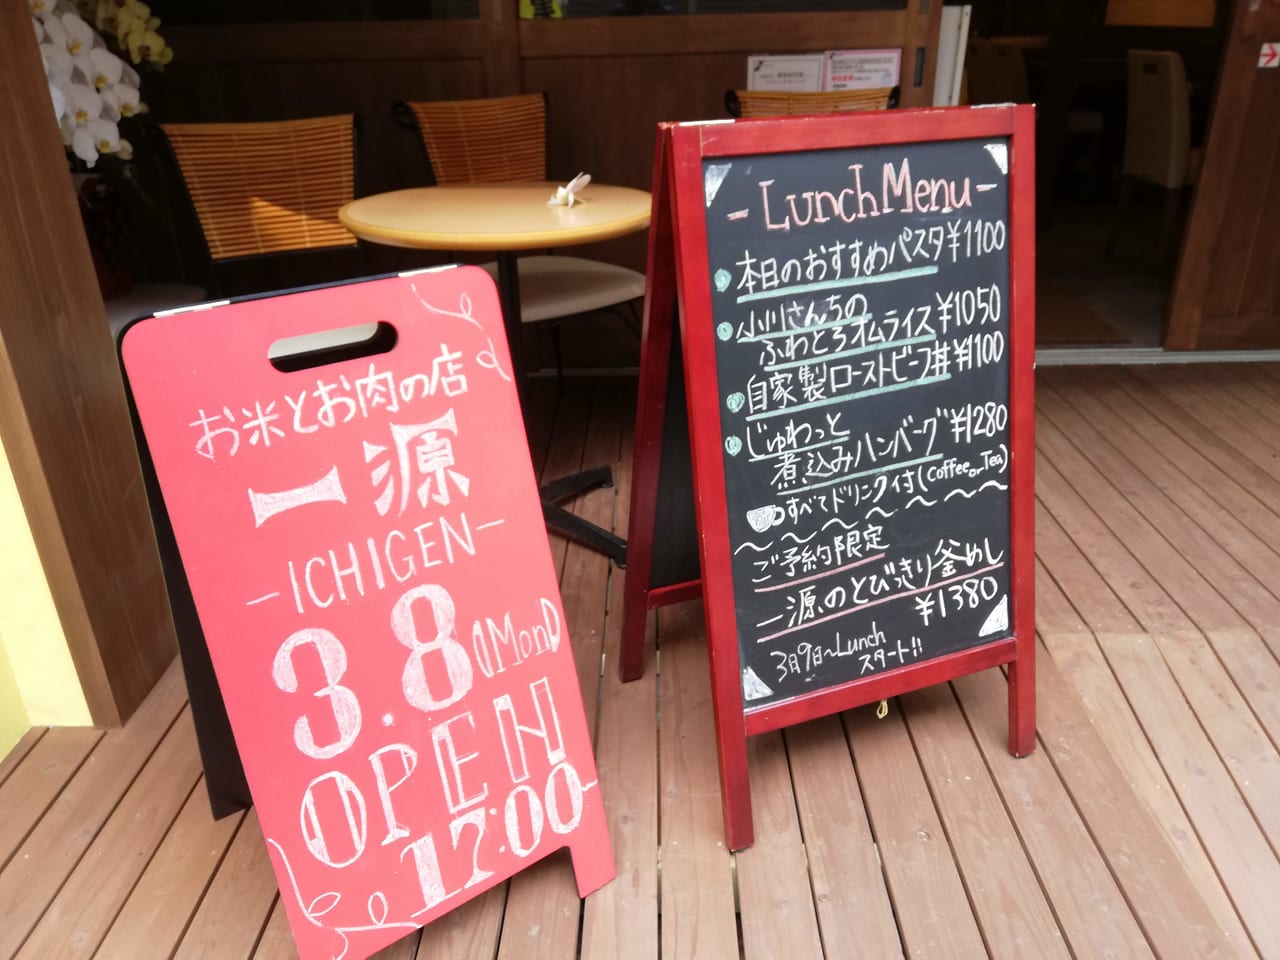 お米とお肉の店
一源
-ICHIGEN-
3.8(Mon)
OPEN
17:00~
- Lunch Menu -
本日のおすすめパスタ¥1100
小川さんちの
ふわとろオムライス¥1050
自家製ローストビーフ丼¥1100
じゅわっと
煮込みハンバーグ¥1280
すべてドリンク付(Coffee or Tea)
~~~~~~~~
ご予約限定
一源のとびっきり釜めし
¥1380
3月9日~Lunch
スタート!!